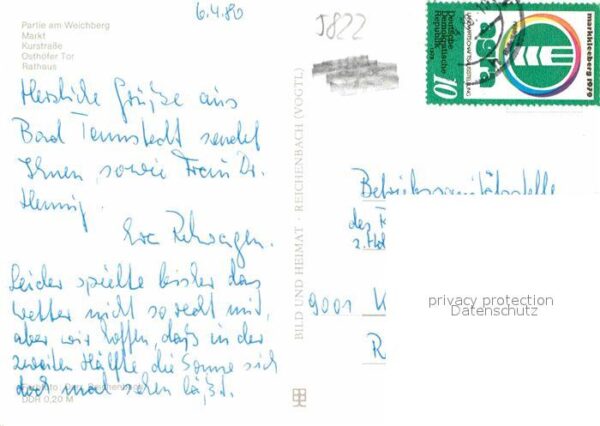 6.4.80
Partie am Weichberg
Markt
Kurstraße
Osthöfer Tor
Rathaus
Herzliche Grüße aus
Bad Tennstedt sendet
Ihnen sowie Frau Dr.
Hennig.
Eva Rehwagen.
Leider spielte bisher das
Wetter nicht so recht mit,
aber wir hoffen, daß in der
zweiten Hälfte die Sonne sich
doch mal sehen läßt.
DDR 0,20 M
BILD UND HEIMAT · REICHENBACH (VOGTL)
5822
Deutsche
Demokratische
Republik
1979
LANDWIRTSCHAFTSAUSSTELLUNG
agra
markkleeberg 1979
10
Betriebssanitätsstelle
des
9001 K
R
privacy protection
Datenschutz